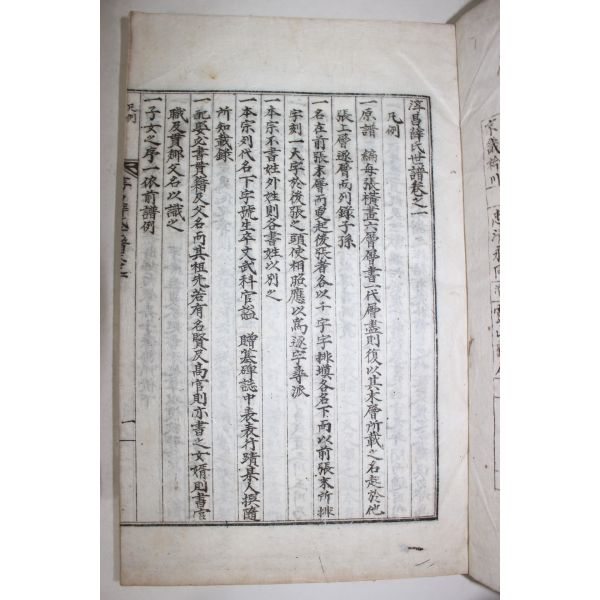 淳昌薛氏世譜卷之一
凡例
一原譜 編每張橫畫六層層書一代層盡則復以其末層所載之名起於他
張上層逐層而列錄子孫
一名在前張末層而更起後張者各以千字字排塡各名下而以前張末所排
字刻一大字於後張之頭使相照應以爲逐字尋派
一本宗不書姓外姓則各書姓以別之
一本宗列代名下字號生卒文武科官謚 贈墓碑誌中表表行蹟某人撰隨
所知載錄
一配娶必書貫籍及父名而其祖先若有名賢及高官則亦書之女婿則書官
職及貫鄕父名以識之
一子女之序一依前譜例
凡例
一